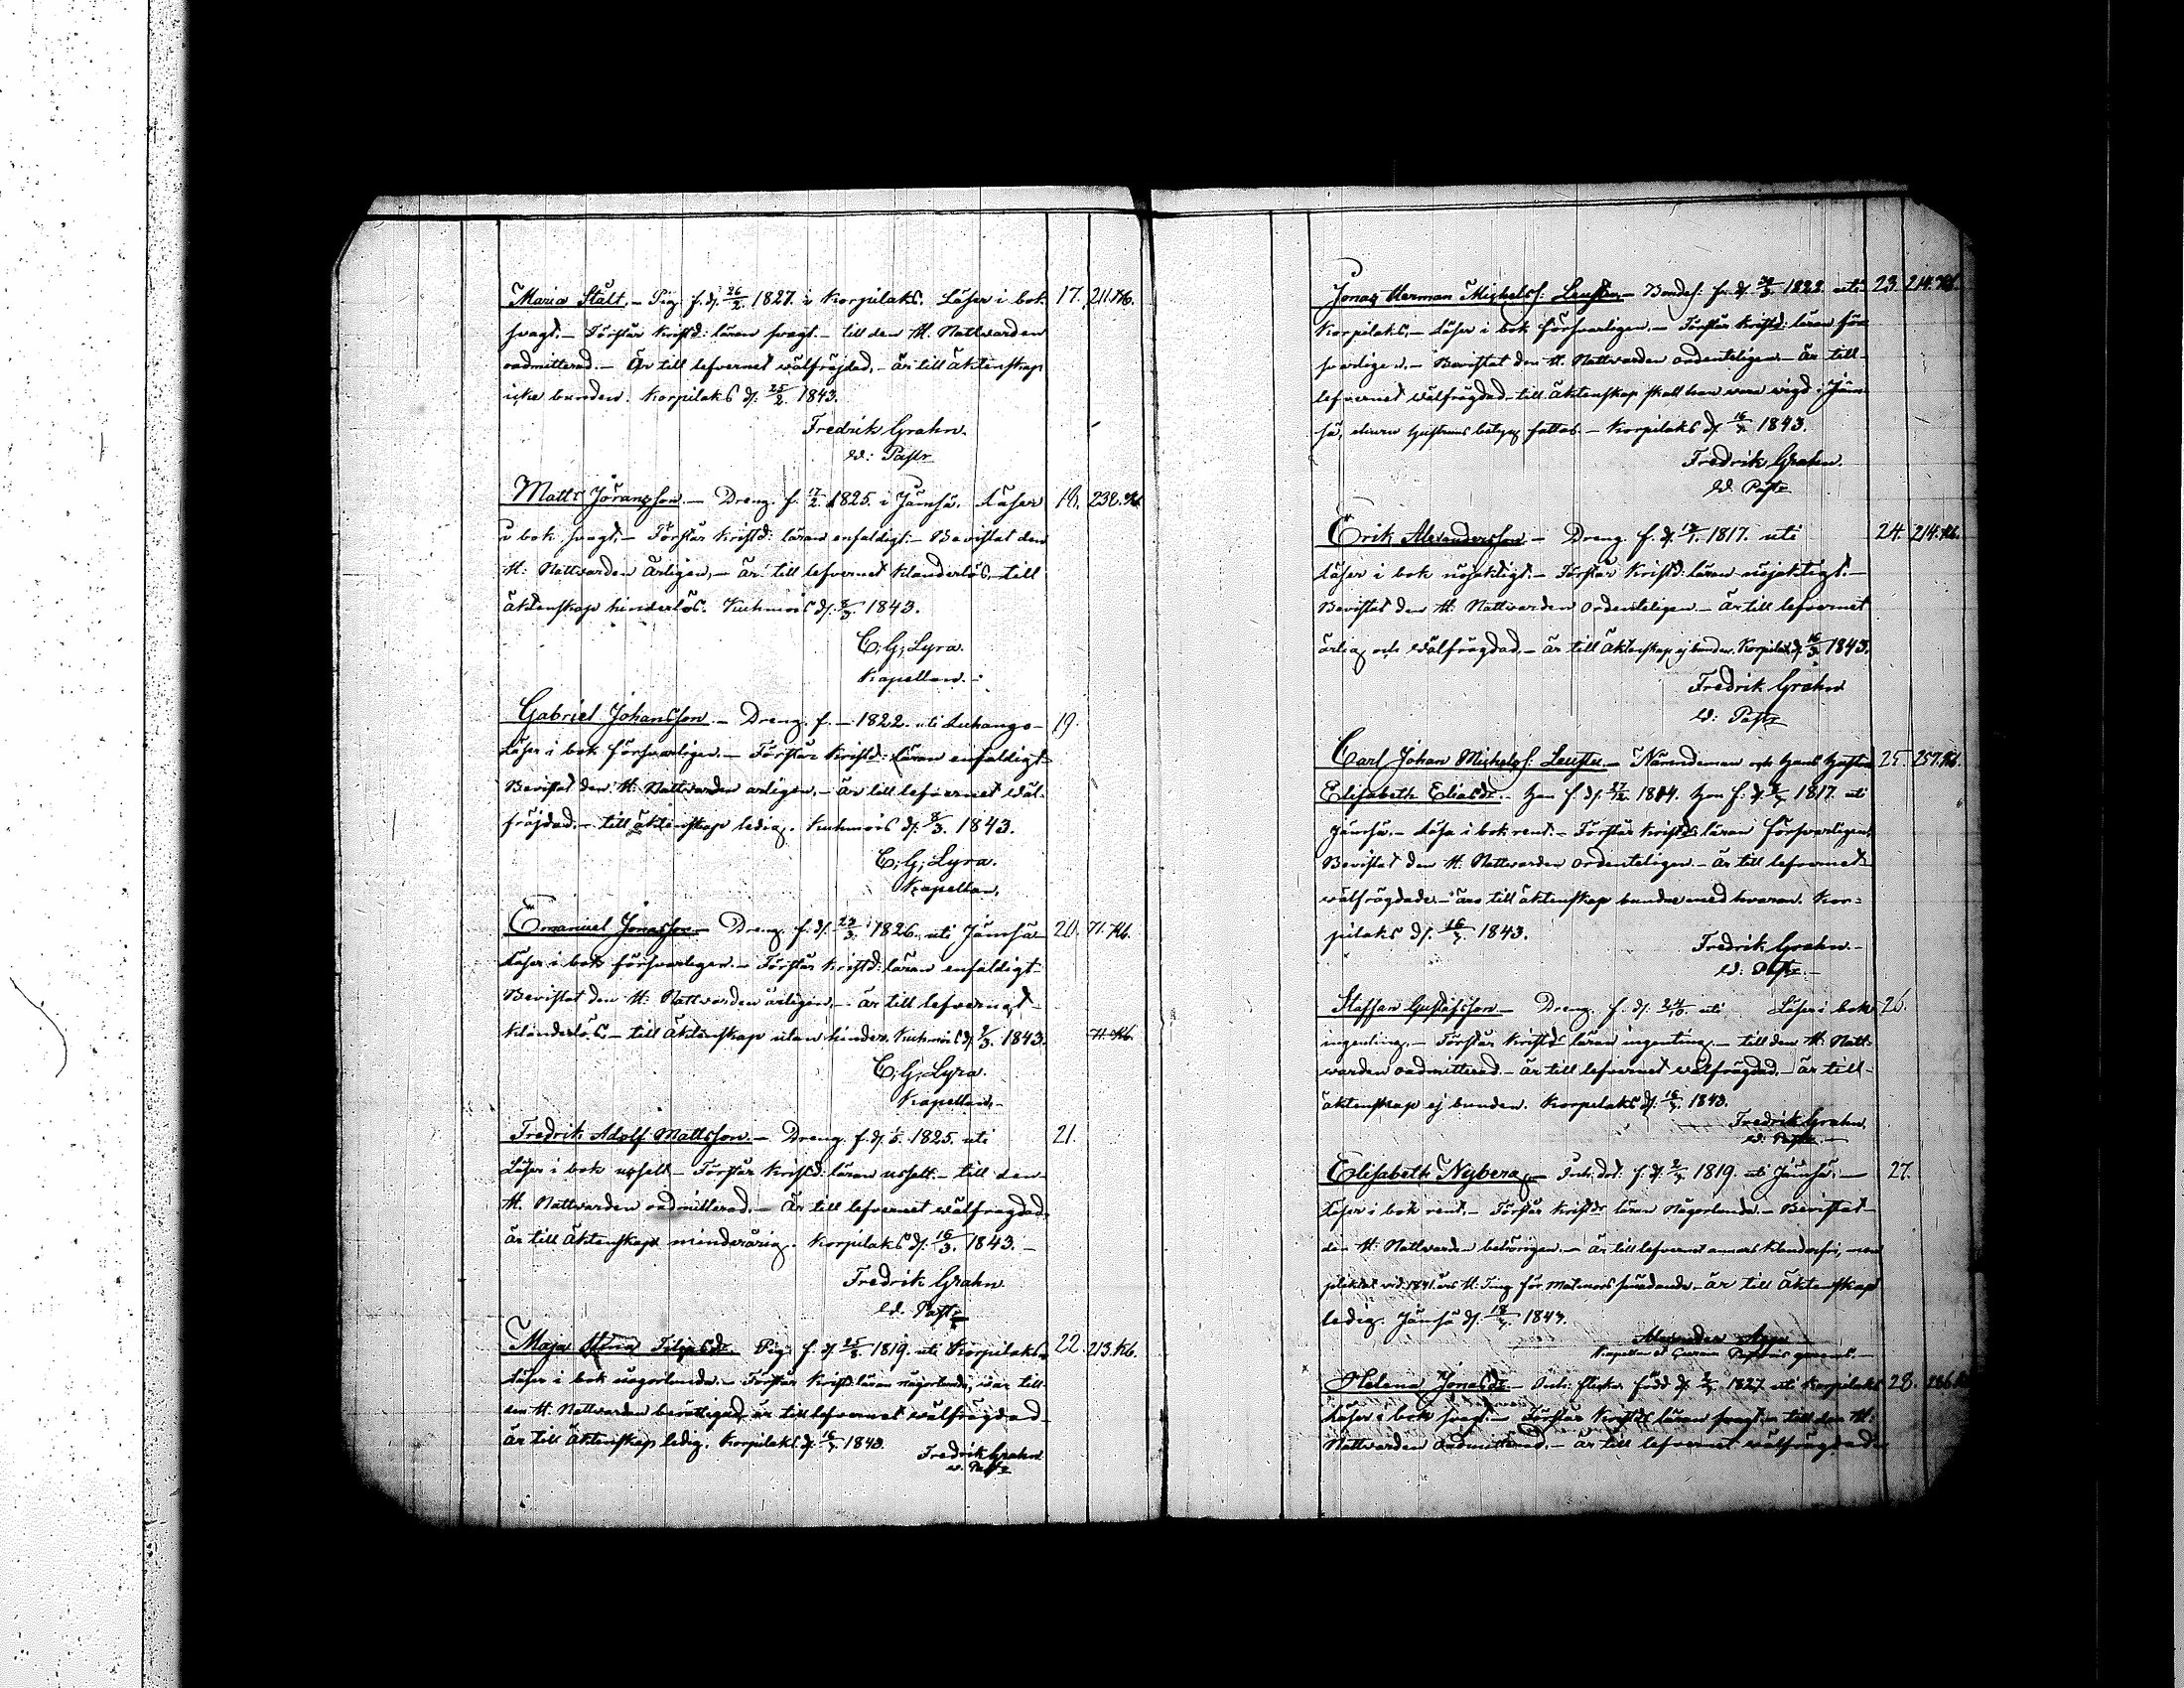 Maria Stålt. – Pig. f. d. 26/2. 1827. i Korpilaks. Läser i bok 17. 211. Kb.
svagt. – Förstår Kristd: läran svagt. – till den H. Nattvarden
oadmitterad. – Är till lefvernet wälfräjdad. – är till äktenskap
icke bunden. Korpilaks d. 25/2. 1843.
Fredrik Grahn.
W: Pastr
Matts Jöransson. – Dreng. f. 17/2. 1825. i Jämsä. Läser 18. 238. Kb
i bok svagt. – Förstår Kristd: läran enfaldigt. – Bevistat den
H: Nattvarden årligen, – är till lefvernet klanderlös, – till
äktenskap hinderlös. Kuhmois d. 8/3. 1843.
C; G; Lyra.
Kapellan. –
Gabriel Johansson. – Dreng. f. – 1822. uti Luhango – 19.
Läser i bok försvarligen. – Förstår Kristd: läran enfaldigt.
Bevistat den H: Nattvarden årligen. – är till lefvernet wäl-
fräjdad. – till äktenskap ledig. Kuhmois d. 8/3. 1843.
C; G; Lyra.
Kapellan.
Emanuel Jonasson – Dreng. f. d. 23/3. 1826. uti Jämsä – 20. 71. Kb.
Läser i bok försvarligen. – Förstår Kristd: läran enfaldigt
Bevistat den H: Nattvarden årligen. – är till lefvernet –
klanderlös, – till äktenskap utan hinder. Kuhmois d. 8/3. 1843. 71. Kb.
C; G; Lyra.
Kapellan. –
Fredrik Adolf Mattsson. – Dreng. f. d. 1/5. 1825. uti 21.
Läser i bok uselt – Förstår Kristd: läran uselt. – till den –
H. Nattvarden oadmitterad. – Är till lefvernet wälfrägdad.
är till äktenskap minderårig. Korpilaks d. 16/3. 1843. –
Fredrik Grahn
W. Pastr
Maja Filipsdr. Pig f. d. 1819. uti Korpilaks. 22. 213. Kb.
Läser i bok någorlunda. – Förstår Kristd: läran någorlunda, war till
den H. Nattvarden berättigad, är till lefvernet wälfrägdad –
är till äktenskap ledig. Korpilaks d. 16/3. 1843.
Fredrik Grahn
w. Pastr
Jonas Herman Michelss: Leuster – Bondes. f. d. 1822 uti 23. 214. Kb.
Korpilaks, – Läser i bok försvarligen. – Förstår Kristd: läran för-
svarligen. – Bevistat den H. Nattvarden ordenteligen. – är till
lefvernet wälfrägdad – till äktenskap skall han vara wigd i Jäm-
sä, hustruns betyg fattas. – Korpilaks d. 16/3. 1843.
Fredrik Grahn.
W. Pastr
Erik Alexandersson – Dreng. f. d. 1817. uti 24. 214. Kb.
Läser i bok nöjaktigt. – Förstår Kristd: läran nöjaktigt. –
Bevistat den H. Nattvarden ordenteligen – är till lefvernet
ärlig och wälfrägdad. – är till äktenskap ej bunden. Korpilaks d. 16/3. 1843.
Fredrik Grahn
W: Pastr
Carl Johan Michelss: Leuster. – Nämndeman och hans hustru 25. 257. Kb.
Elisabeth Eliasdr. – han f. d. 1814. hon f. d. 1817. uti
Jämsä. – Läsa i bok rent. – Förstår Kristds: läran försvarligen.
Bevistat den H. Nattvarden ordenteligen. – är till lefvernet
wälfrägdade. – äro till äktenskap bundne med hvaran. Kor-
pilaks d. 16/3. 1843.
Fredrik Grahn. –
W: Pastr. –
Staffan Gustafsson – Dreng. f. d. 24/10. uti Läser i bok 26.
ingenting. – Förstår Kristds läran ingenting. – till den H. Natt-
varden oadmitterad. – är till lefvernet wälfrägdad. – är till –
äktenskap ej bunden. Korpilaks d. 16/3. 1843.
Fredrik Grahn
W: Pastr –
Elisabeth Nyberg. – Inh. dot. f. d. 1819. uti Jämsä. – 27.
Läser i bok rent. – Förstår Kristds läran någorlunda. – Bevistat –
den H: Nattvarden behörigen. – är till lefvernet annars klanderfri, men
pliktat vid 1841 års H. Ting för – är till äktenskap
ledig. Jämsä d. 18/3. 1843.
Alexander
Kapellan
Helena Jonasdr. – Inh: flicka. född d. 1827 uti Korpilaks 28. 286.
Läser i bok svagt. – Förstår Kristds läran svagt. – till den H:
Nattvarden oadmitterad. – är till lefvernet wälfrägdad.